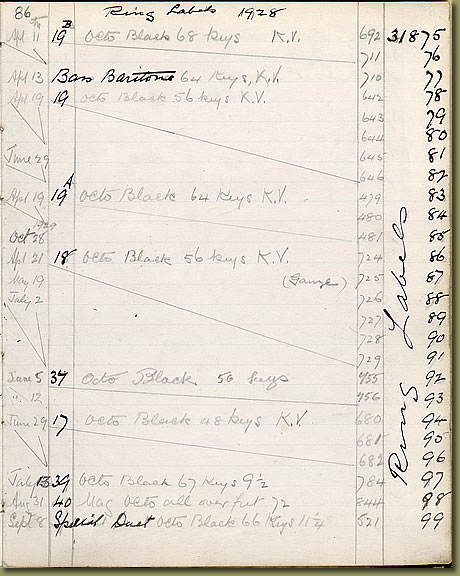 86 Ring Labels 1928
Apl 11 19 B Octo Black 68 keys K.V. 692 31875
711 76
Apl 13 Bass Baritone 64 Keys, K.V. 710 77
Apl 19 19 Octo Black 56 keys K.V. 642 78
643 79
644 80
June 29 645 81
646 82
Apl 19 19 A Octo Black 64 Keys K.V. 479 83
1929 480 84
Oct 28 481 85
Apl 21 18 Octo Black 56 keys K.V. 724 86
May 19 (Gauze) 725 87
July 2 726 88
727 89
728 90
729 91
June 5 37 Octo Black 56 keys 955 92
" 12 956 93
June 29 17 Octo Black 48 keys K.V. 680 94
681 95
682 96
July 13 39 Octo Black 67 Keys 9½ 784 97
Aug 31 40 Mac Octo all over fret 72 844 98
Sept 8 Special Duet Octo Black 66 Keys 11¼ 521 99
Ring Labels